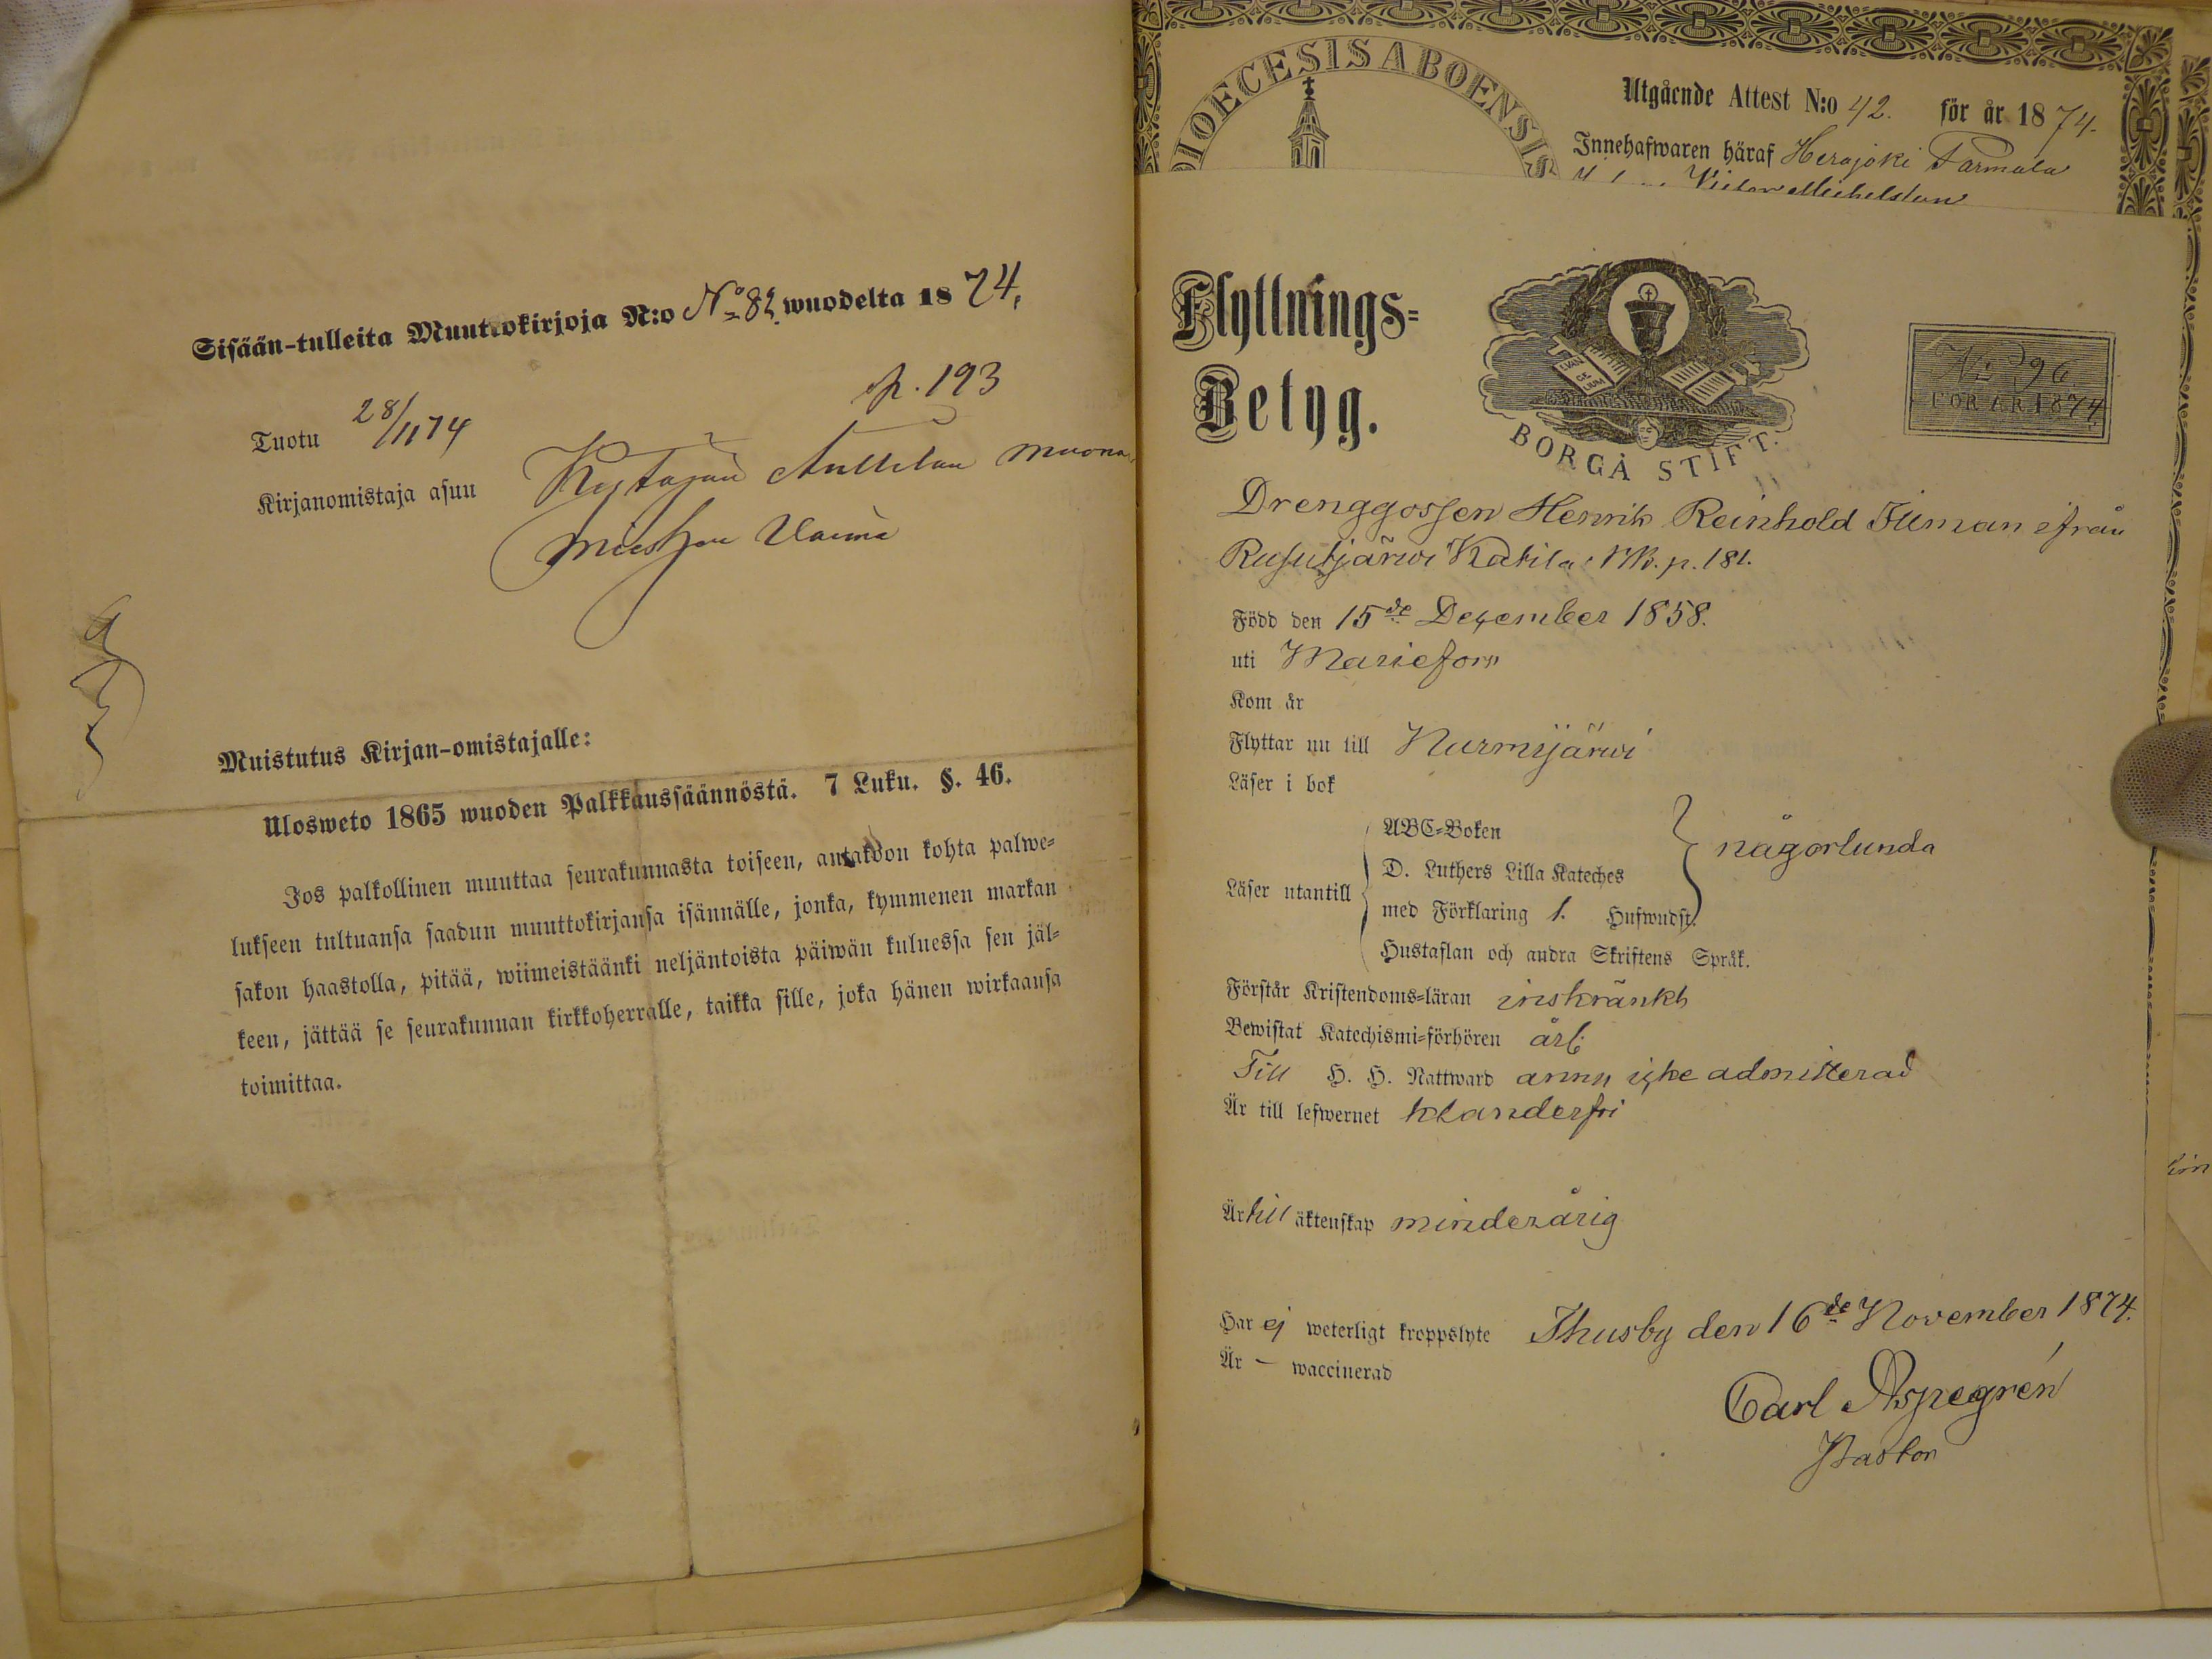 Sisään-tulleita Muuttokirjoja N:o No 82 wuodelta 1874.
p. 193
Tuotu 28/11 74
Kirjanomistaja asuu Kytäjän Anttilan muona
miehen
Muistutus Kirjan-omistajalle:
Ulosweto 1865 wuoden Palkkaussäännöstä. 7 Luku. §. 46.
Jos palkollinen muuttaa seurakunnasta toiseen, antakoon kohta palwe-
lukseen tultuansa saadun muuttokirjansa isännälle, jonka, kymmenen markan
sakon haastolla, pitää, wiimeistäänki neljäntoista päiwän kuluessa sen jäl-
keen, jättää se seurakunnan kirkkoherralle, taikka sille, joka hänen wirkaansa
toimittaa.
DIOECESIS ABOENSIS
Utgående Attest N:o 42. för år 1874.
Innehafwaren häraf Herajoki Parmala
Victor Michelsson
Flyttnings-
Betyg.
EVAN
GE
LIUM
BORGÅ STIFT.
No 96
FÖR ÅR 1874.
Drenggossen Henrik Reinhold Illman ifrån
Rusutjärwi Katila: NB. p. 181.
Född den 15de December 1858.
uti Mariefors
Kom år
Flyttar nu till Nurmijärwi
Läser i bok
Läser utantill
ABC-Boken
D. Luthers Lilla Kateches
med Förklaring 1. Hufwudst.
Hustaflan och andra Skriftens Språk.
någorlunda
Förstår Kristendoms-läran inskränkt
Bewistat Katechismi-förhören årl:
Till H. H. Nattward annu icke admitterad
Är till lefwernet klanderfri
Är till äktenskap minderårig
Har ej weterligt kroppslyte Thusby den 16de November 1874.
Är — waccinerad
Carl Aspegrén
Pastor